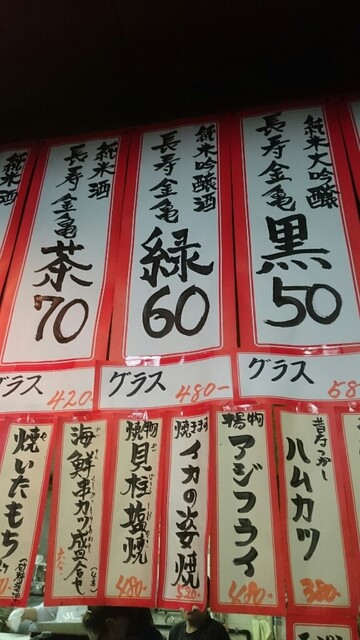 純米大吟醸
長寿金亀
黒
50
グラス 58
純米吟醸酒
長寿金亀
緑
60
グラス 480-
純米酒
長寿金亀
茶
70
グラス 420-
純米酒
昔なつかし
ハムカツ
380-
揚物
アジフライ
480-
イカの姿焼
520-
焼物
貝柱塩焼
480-
海鮮串カツ盛合せ
焼いたもち